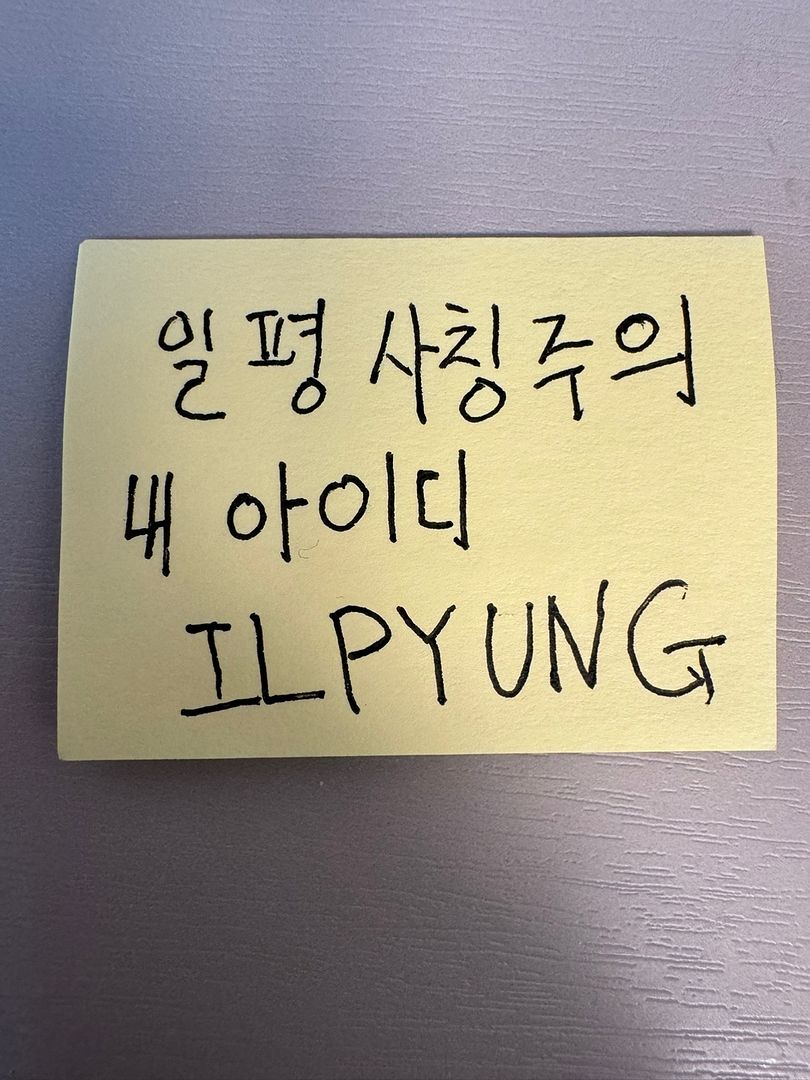 일평 사칭주의
내 아이디
ILPYUNG